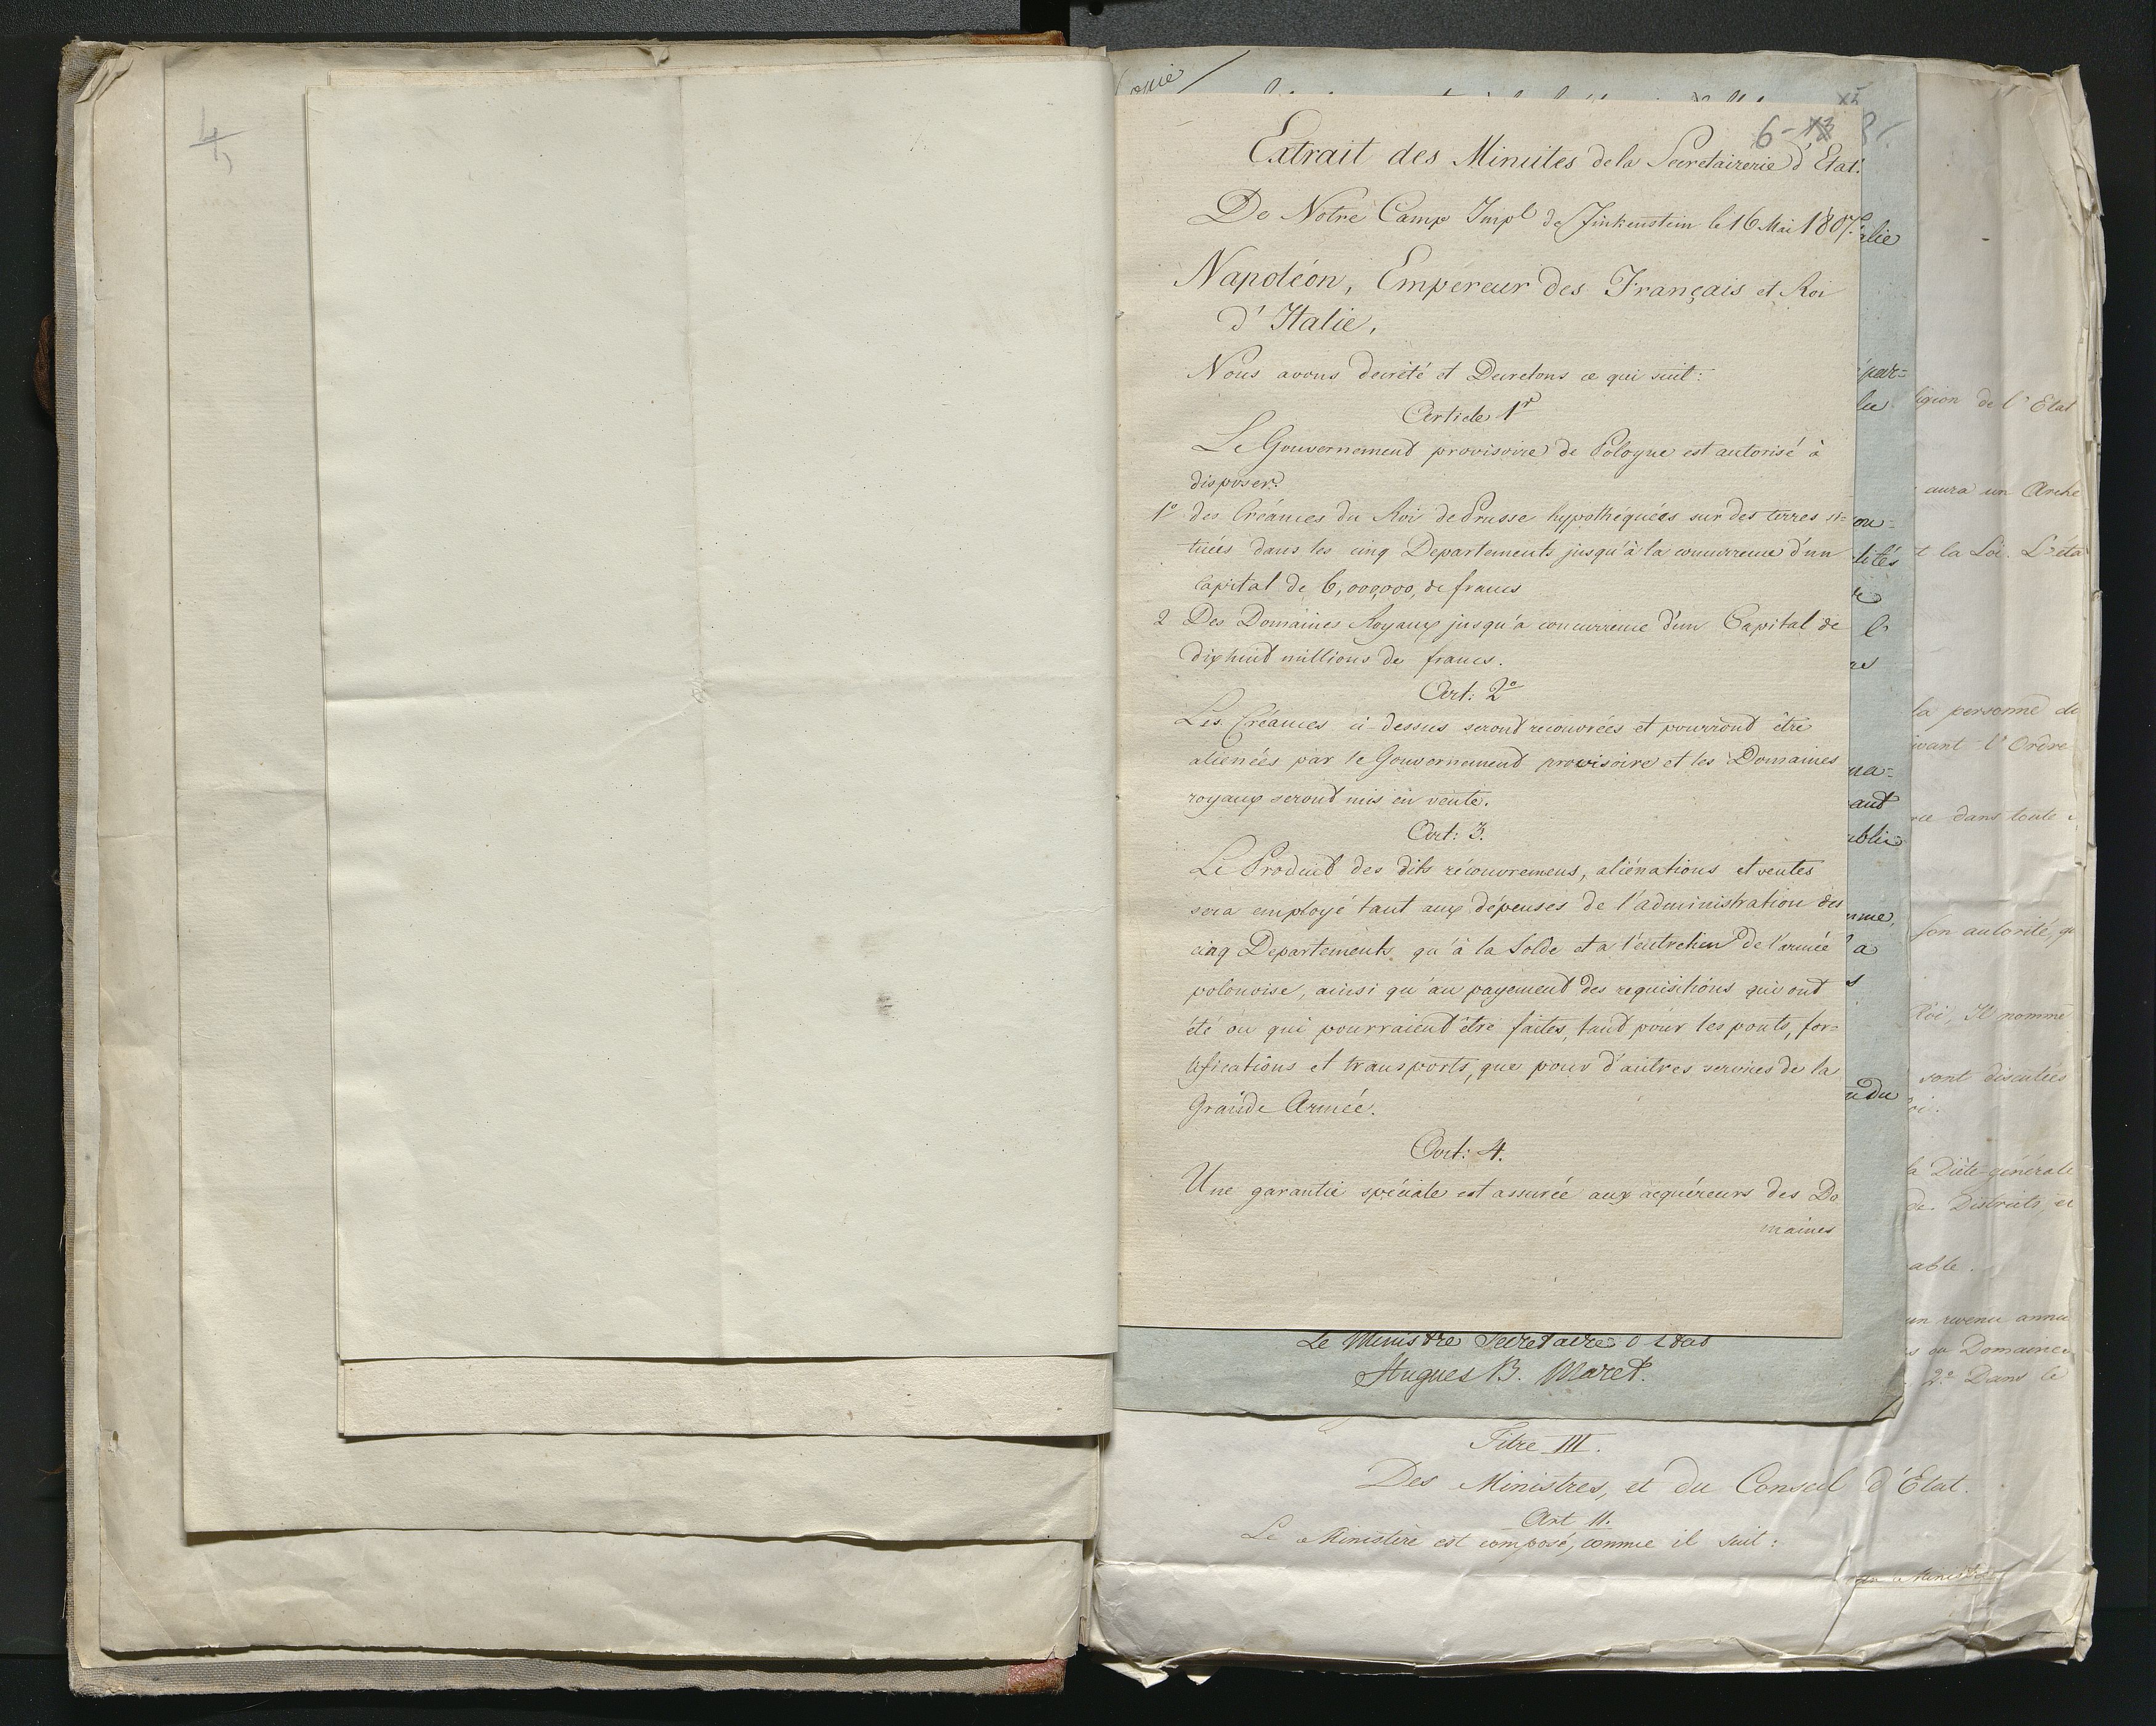 4,
Copie
6-13
Extrait des Minutes de la Secretairerie d'Etat.
De Notre Camp Impl de Finkenstein le 16 Mai 1807.
Napoléon, Empereur des Français et Roi
d'Italie,
Nous avons decrété et Decretons ce qui suit:
Article 1r
Le Gouvernement provisoire de Pologne est autorisé à
disposer.
1o des Créances du Roi de Prusse hypothéquées sur des terres si=
tuées dans les cinq Departements jusqu'à la concurrence d'un
Capital de 6,000,000, de francs
2 Des Domaines Royaux jusqu'a concurrence d'un Capital de
dixhuit millions de francs.
Art: 2o
Les Créances ci-dessus seront recouvrées et pourront être
aliénées par le Gouvernement provisoire et les Domaines
royaux seront mis en vente.
Art: 3.
Le Produit des dits récouvremens, aliénations et ventes
sera employé tant aux dépenses de l'administration des
cinq Departements qu'à la Solde et a l'entretien de l'armée
polonoise, ainsi qu'au payement des requisitions qui ont
été ou qui pourraient être faites, tant pour les ponts, for=
tifications et transports, que pour d'autres services de la
Grande Armée.
Art: 4.
Une garantie spéciale est assurée aux acquéreurs des Do
maines
Le Ministre Secretaire d'Etat
Hugues B. Maret.
alie
ligion de l'Etat
aura un Arche
t la Loi. L'éta
la personne de
ivant l'Ordre
dans toute
son autorité, qu
Roi, Il nomme
sont discutées
la Diète-générale
de Districts, et
able.
un revenu annu
s ou Domaines
2o Dans le
Titre III.
Des Ministres, et du Conseil d'Etat.
Art 11.
Le Ministère est composé, comme il suit:
un Ministre